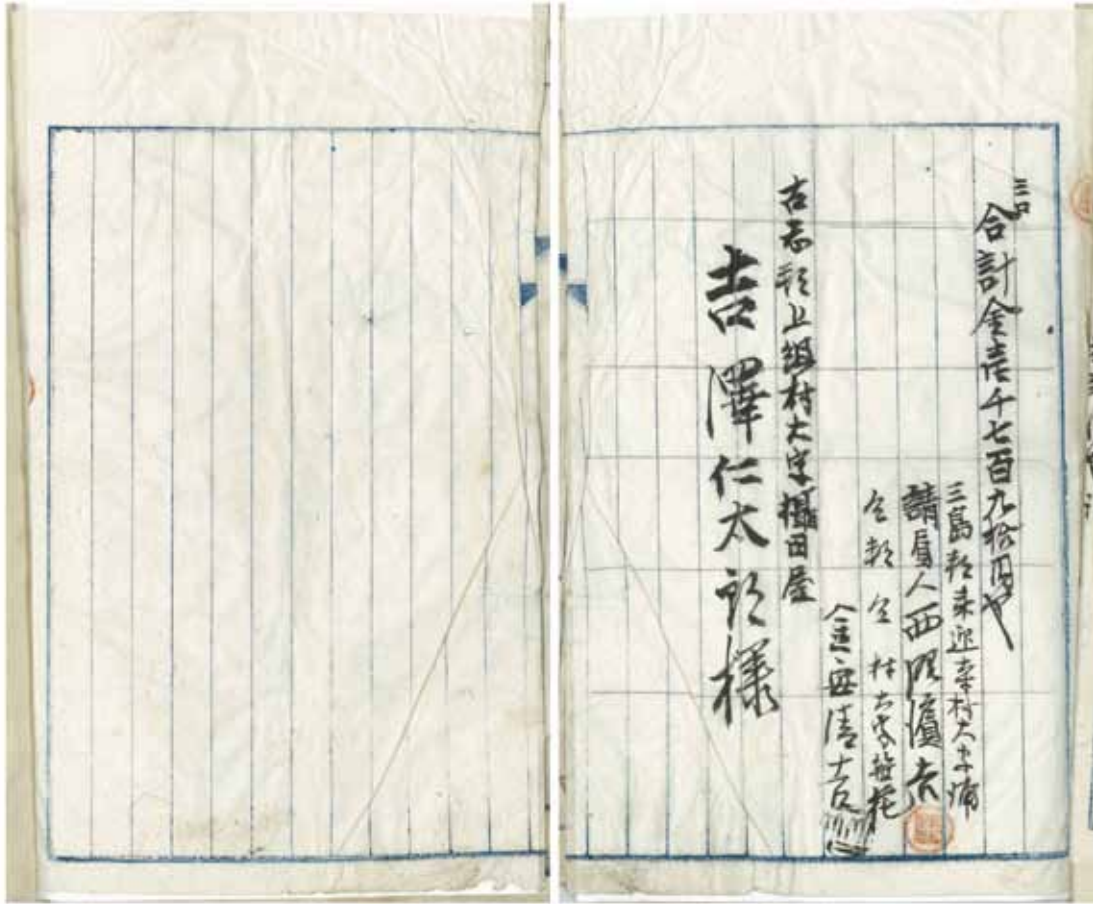 三口
合計金壱千七百九拾円也
三島郡来迎寺村大字浦
請負人西脇濱吉
仝郡仝村大字菱花
金安清吉
古志郡上組村大字摂田屋
吉澤仁太郎様